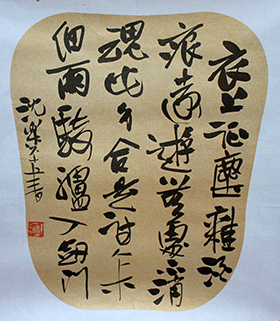 衣上征塵雜酒
痕遠遊無處不消
魂此身合是詩人未
細雨騎驢入劍門
沈樂平書